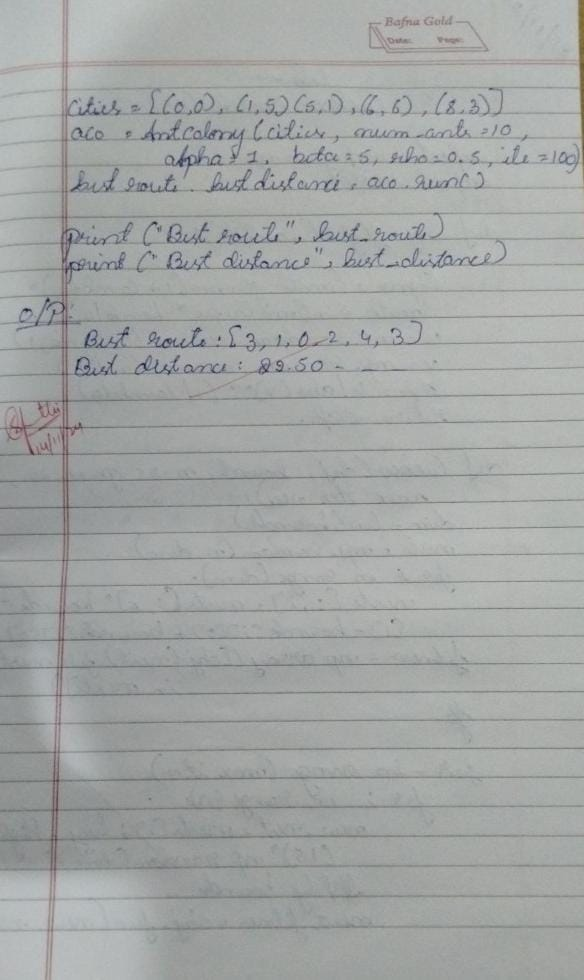 Bafna Gold
Date: Page:
cities = [(0,0), (1,5) (5,1), (6,6), (8,3)]
aco = Antcolony (cities, num_ants =10,
alpha = 1, beta = 5, rho = 0.5, ite = 100)
best route. best distance = aco.run()
print ("Best route", best_route)
print (" Best distance", best_distance)
O/P:
Best route : [3, 1, 0, 2, 4, 3]
Best distance : 22.50 -
14/11/24